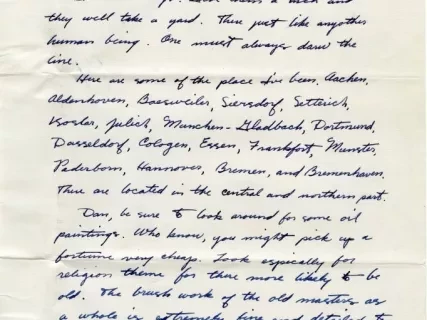 they well take a yard. There just like anyother
human being. One must always draw the
line.
Here are some of the place I've been. Aachen,
Aldenhoven, Baesweiler, Siersdorf, Setterich,
Koslar, Julich, Munchen-Gladbach, Dortmund,
Dusseldorf, Cologen, Essen, Frankfort, Munster,
Paderborn, Hannover, Bremen, and Bremenhaven.
There are located in the central and northern part.
Dan, be sure to look around for some oil
paintings. Who know, you might pick up a
fortune very cheap. Look espically for
religion theme for there more likely to be
old. The brush work of the old masters as
a whole is extremely fine and detailed to